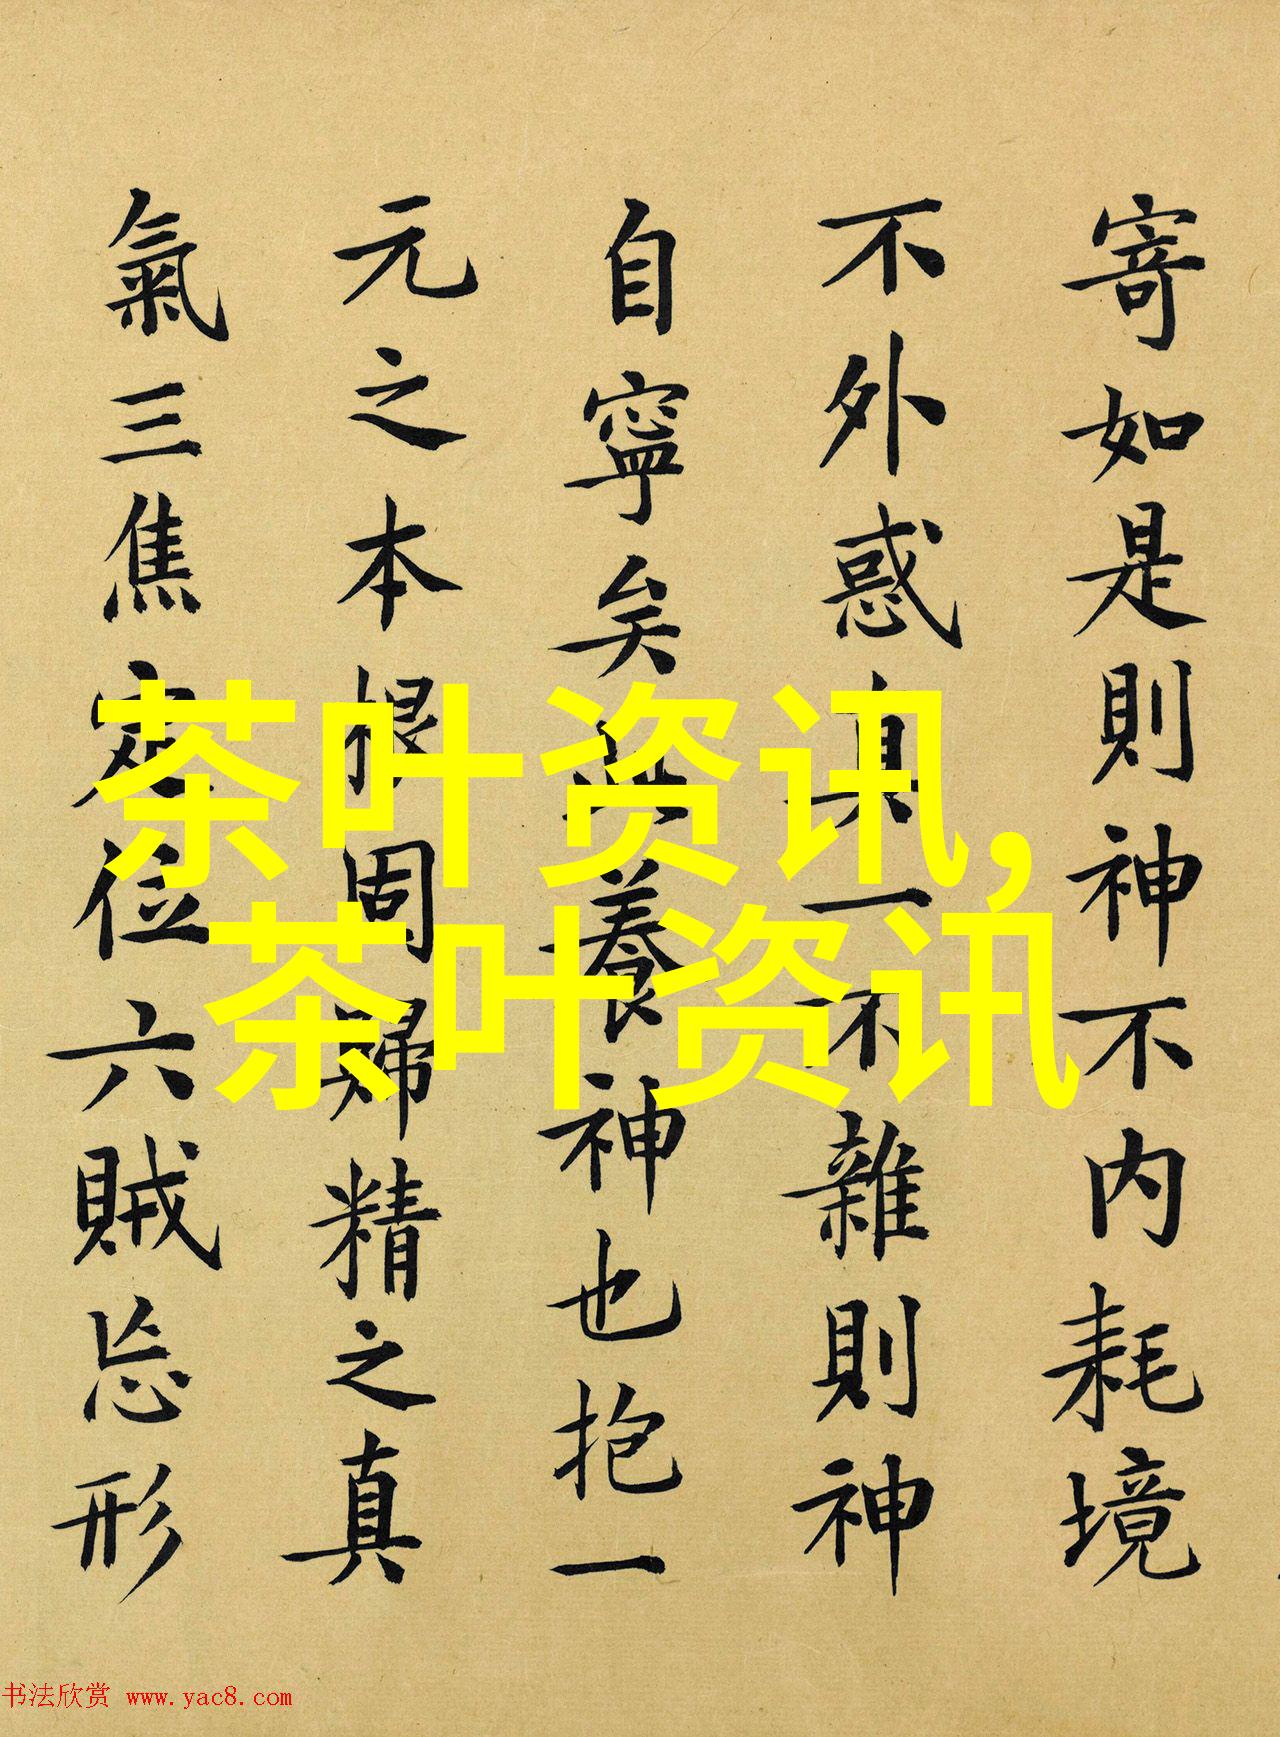 寄如是則神不内耗境
不外惑真一不雜則神
自寧矣此養神也抱一
元之本根固歸精之真
氣三焦定位六賊忘形
茶叶资讯,
茶叶资讯
书法欣赏 www.yac8.com